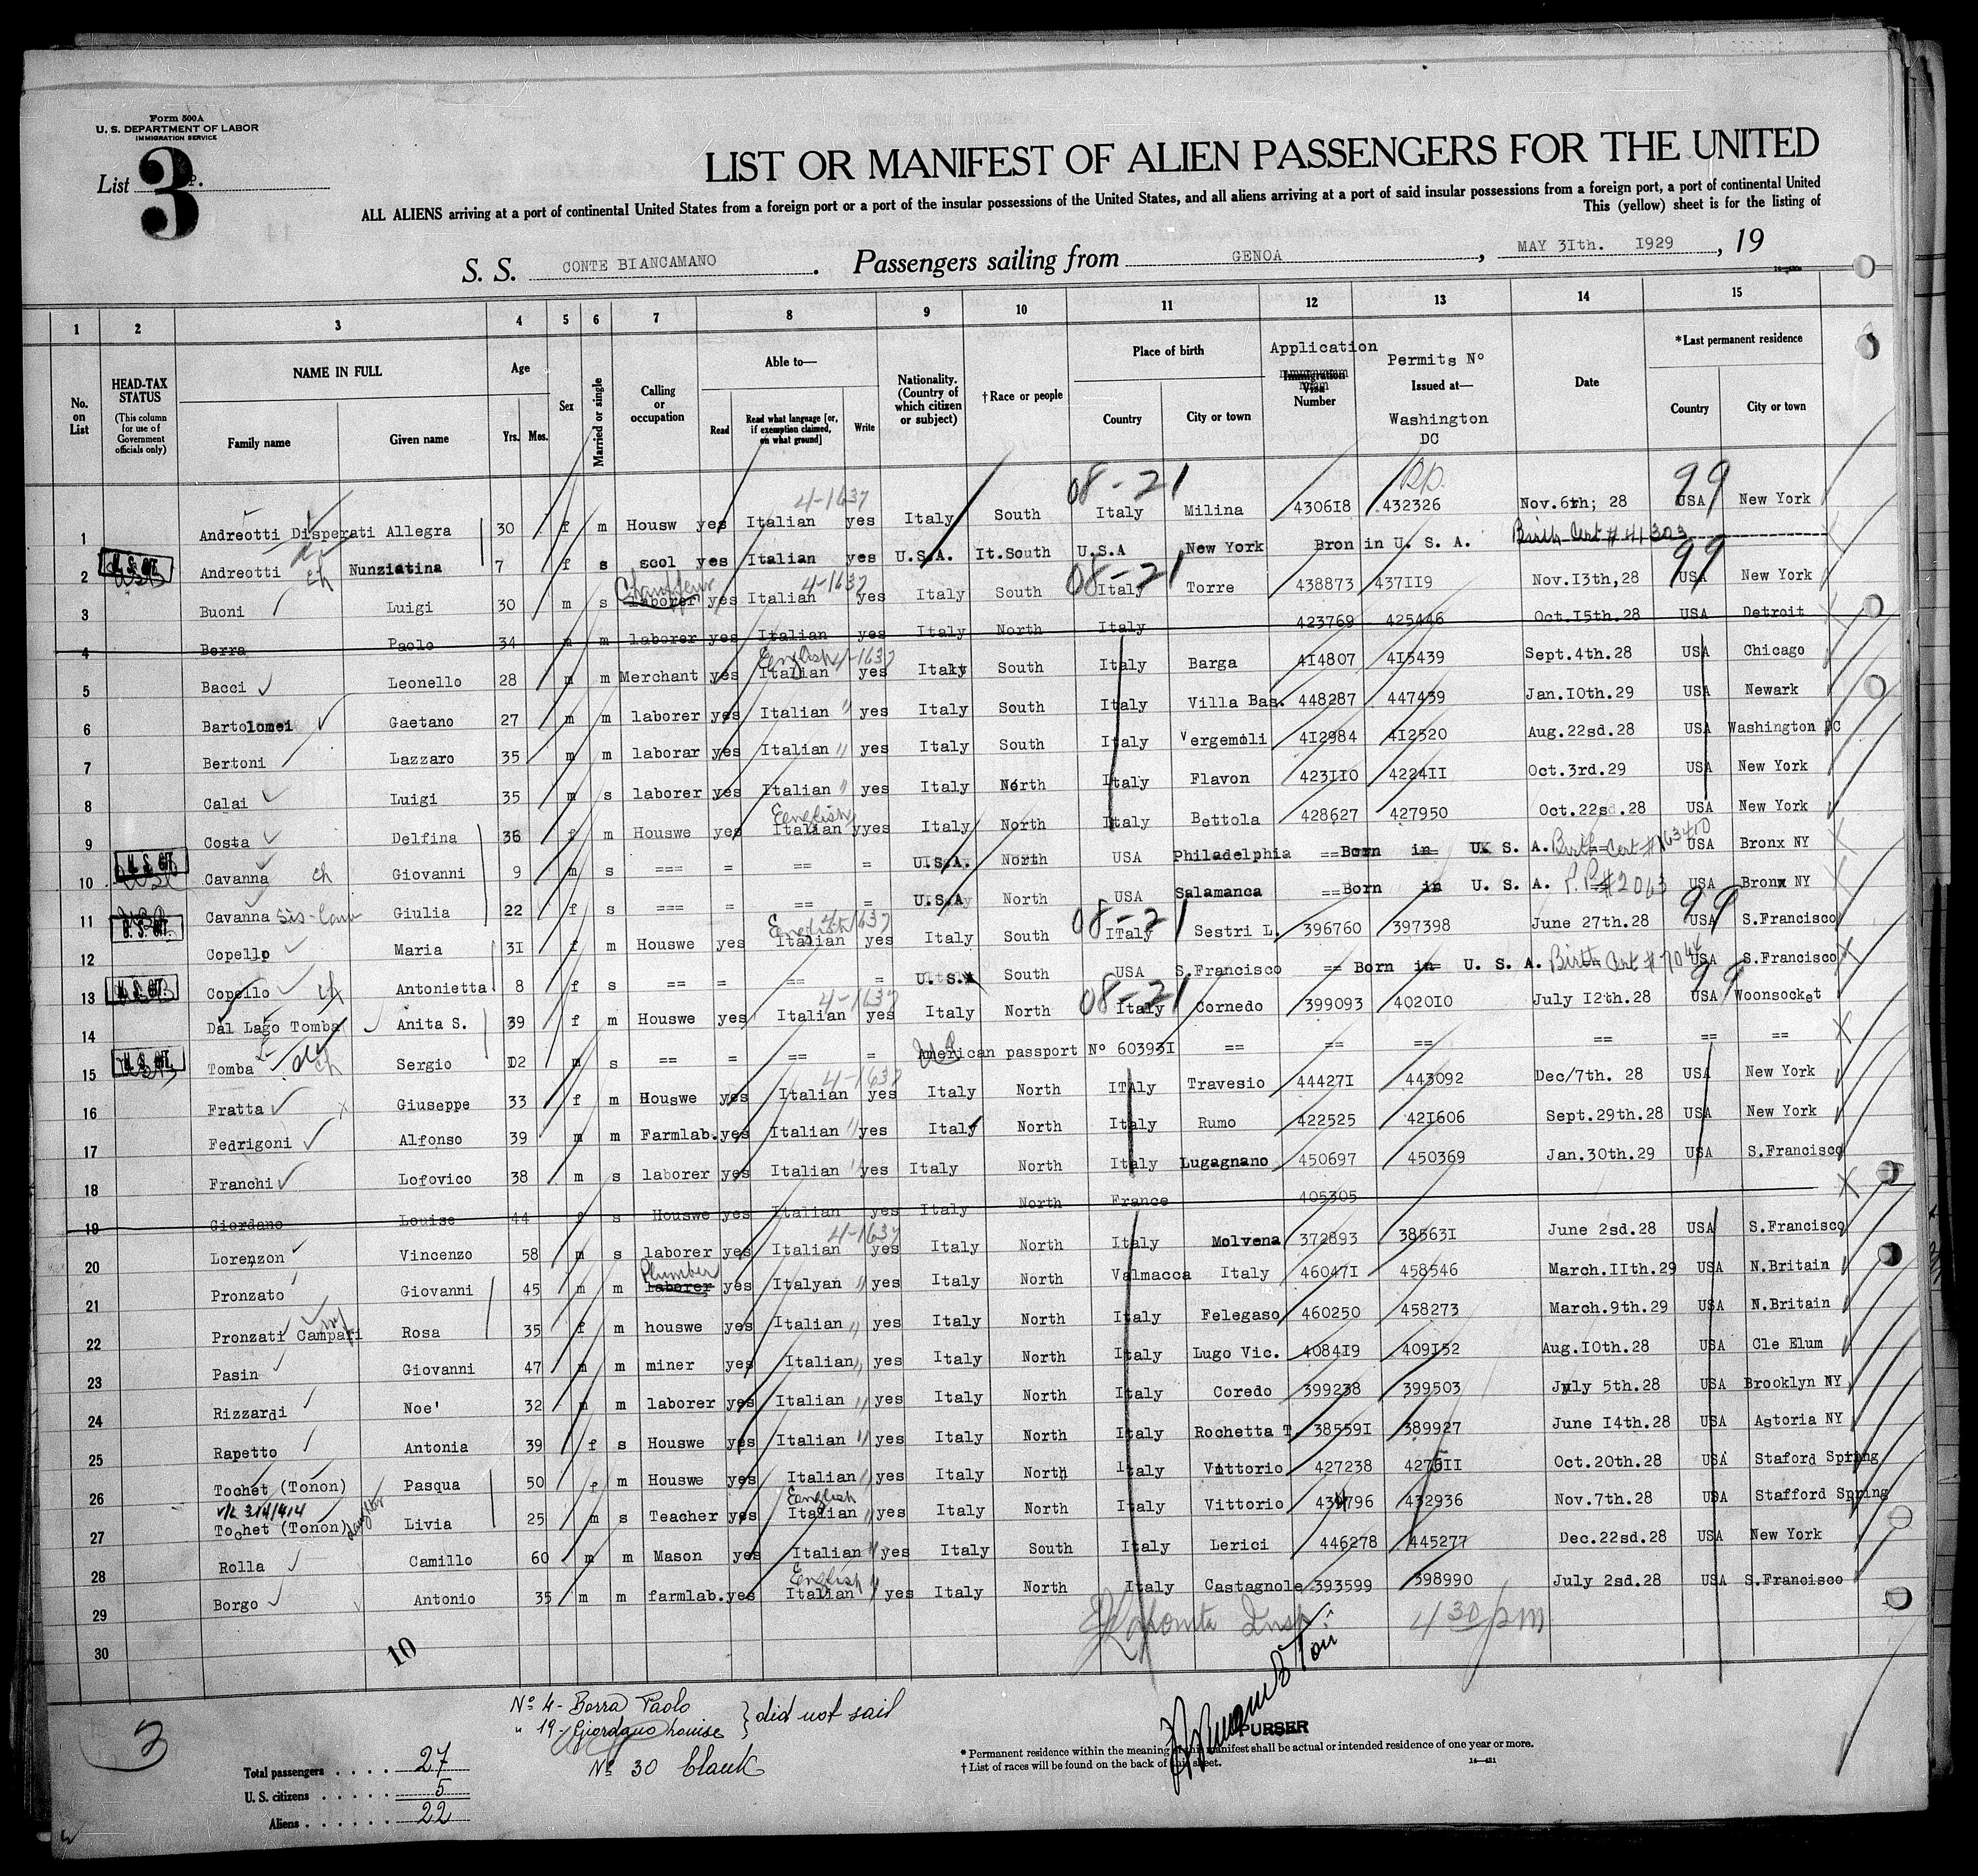 Form 500A
U. S. DEPARTMENT OF LABOR
IMMIGRATION SERVICE
List 3 P.
LIST OR MANIFEST OF ALIEN PASSENGERS FOR THE UNITED
ALL ALIENS arriving at a port of continental United States from a foreign port or a port of the insular possessions of the United States, and all aliens arriving at a port of said insular possessions from a foreign port, a port of continental United
This (yellow) sheet is for the listing of
S. S. CONTE BIANCAMANO . Passengers sailing from GENOA , MAY 3Ith. I929 , 19
1 2 3 4 5 6 7 8 9 10 11 12 13 14 15
No. on List
HEAD-TAX STATUS (This column for use of Government officials only)
NAME IN FULL Family name Given name
Age Yrs. Mos.
Sex
Married or single
Calling or occupation
Able to— Read Read what language [or, if exemption claimed, on what ground] Write
Nationality. (Country of which citizen or subject)
†Race or people
Place of birth Country City or town
Application Immigration Visa Number
Permits Nº Issued at— Washington DC
Date
*Last permanent residence Country City or town
4-1637 08-21 99
1 Andreotti Disperati Allegra 30 f m Housw yes Italian yes Italy South Italy Milina 4306I8 432326 Nov.6th; 28 USA New York
Birth Cert # 41303
2 U. S. CIT. Andreotti ch Nunziatina 7 f s scol yes Italian yes U.S.A. It.South U.S.A New York Bron in U. S. A.
Chauffeur 4-1637 08-21 99
3 Buoni Luigi 30 m s laborer yes Italian yes Italy South Italy Torre 438873 437II9 Nov.I3th,28 USA New York
4 Berra Paolo 34 m m laborer yes Italian yes Italy North Italy 423769 425446 Oct.I5th.28 USA Detroit
English 4-1637
5 Bacci Leonello 28 m m Merchant yes Italian yes Italy South Italy Barga 4I4807 4I5439 Sept.4th.28 USA Chicago
6 Bartolomei Gaetano 27 m m laborer yes Italian " yes Italy South Italy Villa Bas. 448287 447439 Jan.I0th.29 USA Newark
7 Bertoni Lazzaro 35 m m laborar yes Italian " yes Italy South Italy Vergemoli 4I2984 4I2520 Aug.22sd.28 USA Washington DC
8 Calai Luigi 35 m s laborer yes Italian " yes Italy North Italy Flavon 423II0 4224II Oct.3rd.29 USA New York
English
9 Costa Delfina 36 f m Houswe yes Italian yyes Italy North Italy Bettola 428627 427950 Oct.22sd.28 USA New York
10 U. S. CIT. Cavanna ch Giovanni 9 m s === = == = U.S.A. North USA Philadelphia ==Born in U. S. A. Birth Cert # 163410 USA Bronx NY
11 U. S. CIT. Cavanna Giulia 22 f s === = == = U.S.A North USA Salamanca ==Born in U. S. A. P.P.#2063 USA Bronx NY
English 4-1637 08-21 99
12 Copello Maria 3I f m Houswe yes Italian yes Italy South ITaly Sestri L. 396760 397398 June 27th.28 USA S.Francisco
13 U. S. CIT. Copello ch Antonietta 8 f s == = == = U.S.A South USA S.Francisco == Born in U. S. A. Birth Cert # USA S.Francisco
4-1637 08-21 99
14 Dal Lago Tomba Anita S. 39 f m Houswe yes Italian yes Italy North Italy Cornedo 399093 4020I0 July I2th.28 USA Woonsocket
15 U. S. CIT. Tomba ch Sergio I2 m s == = == = American passport Nº 60393I == == == == == ==
4-1637
16 Fratta Giuseppe 33 f m Houswe yes Italian yes Italy North ITAly Travesio 44427I 443092 Dec/7th. 28 USA New York
17 Fedrigoni Alfonso 39 m m Farmlab. yes Italian " yes Italy North Italy Rumo 422525 42I606 Sept.29th.28 USA New York
18 Franchi Lofovico 38 m s laborer yes Italian " yes Italy North Italy Lugagnano 450697 450369 Jan.30th.29 USA S.Francisco
19 Giordano Louise 44 f s Houswe yes Italian yes Italy North France 405305
4-1637
20 Lorenzon Vincenzo 58 m s laborer yes Italian yes Italy North Italy Molvena 372893 38563I June 2sd.28 USA S.Francisco
Plumber
21 Pronzato Giovanni 45 m m laborer yes Italyan " yes Italy North Valmacca Italy 46047I 458546 March.IIth.29 USA N.Britain
22 Pronzati Campari wf Rosa 35 f m houswe yes Italian " yes Italy North Italy Felegaso 460250 458273 March.9th.29 USA N.Britain
23 Pasin Giovanni 47 m m miner yes Italian " yes Italy North Italy Lugo Vic. 4084I9 409I52 Aug.I0th.28 USA Cle Elum
24 Rizzardi Noe' 32 m m laborer yes Italian " yes Italy North Italy Coredo 399238 399503 July 5th.28 USA Brooklyn NY
25 Rapetto Antonia 39 f s Houswe yes Italian " yes Italy North Italy Rochetta T. 38559I 389927 June I4th.28 USA Astoria NY
26 Tochet (Tonon) Pasqua 50 f m Houswe yes Italian " yes Italy North Italy Vittorio 427238 4276II Oct.20th.28 USA Staford Spring
V/L 314/414 English
27 Tochet (Tonon) daughter Livia 25 m s Teacher yes Italian " yes Italy North Italy Vittorio 434796 432936 Nov.7th.28 USA Stafford Spring
28 Rolla Camillo 60 m m Mason yes Italian " yes Italy South Italy Lerici 446278 445277 Dec.22sd.28 USA New York
English
29 Borgo Antonio 35 m m farmlab. yes Italian " yes Italy North Italy Castagnole 393599 398990 July 2sd.28 USA S.Francisco
30
Insp 4 30 pm
10
Nº 4 - Berra Paolo } did not sail
" 19 - Giordano Louise
Nº 30 blank
PURSER
3
Total passengers . . . . . 27
U. S. citizens . . . . . . 5
Aliens . . . . . . 22
* Permanent residence within the meaning of this manifest shall be actual or intended residence of one year or more.
† List of races will be found on the back of this sheet.